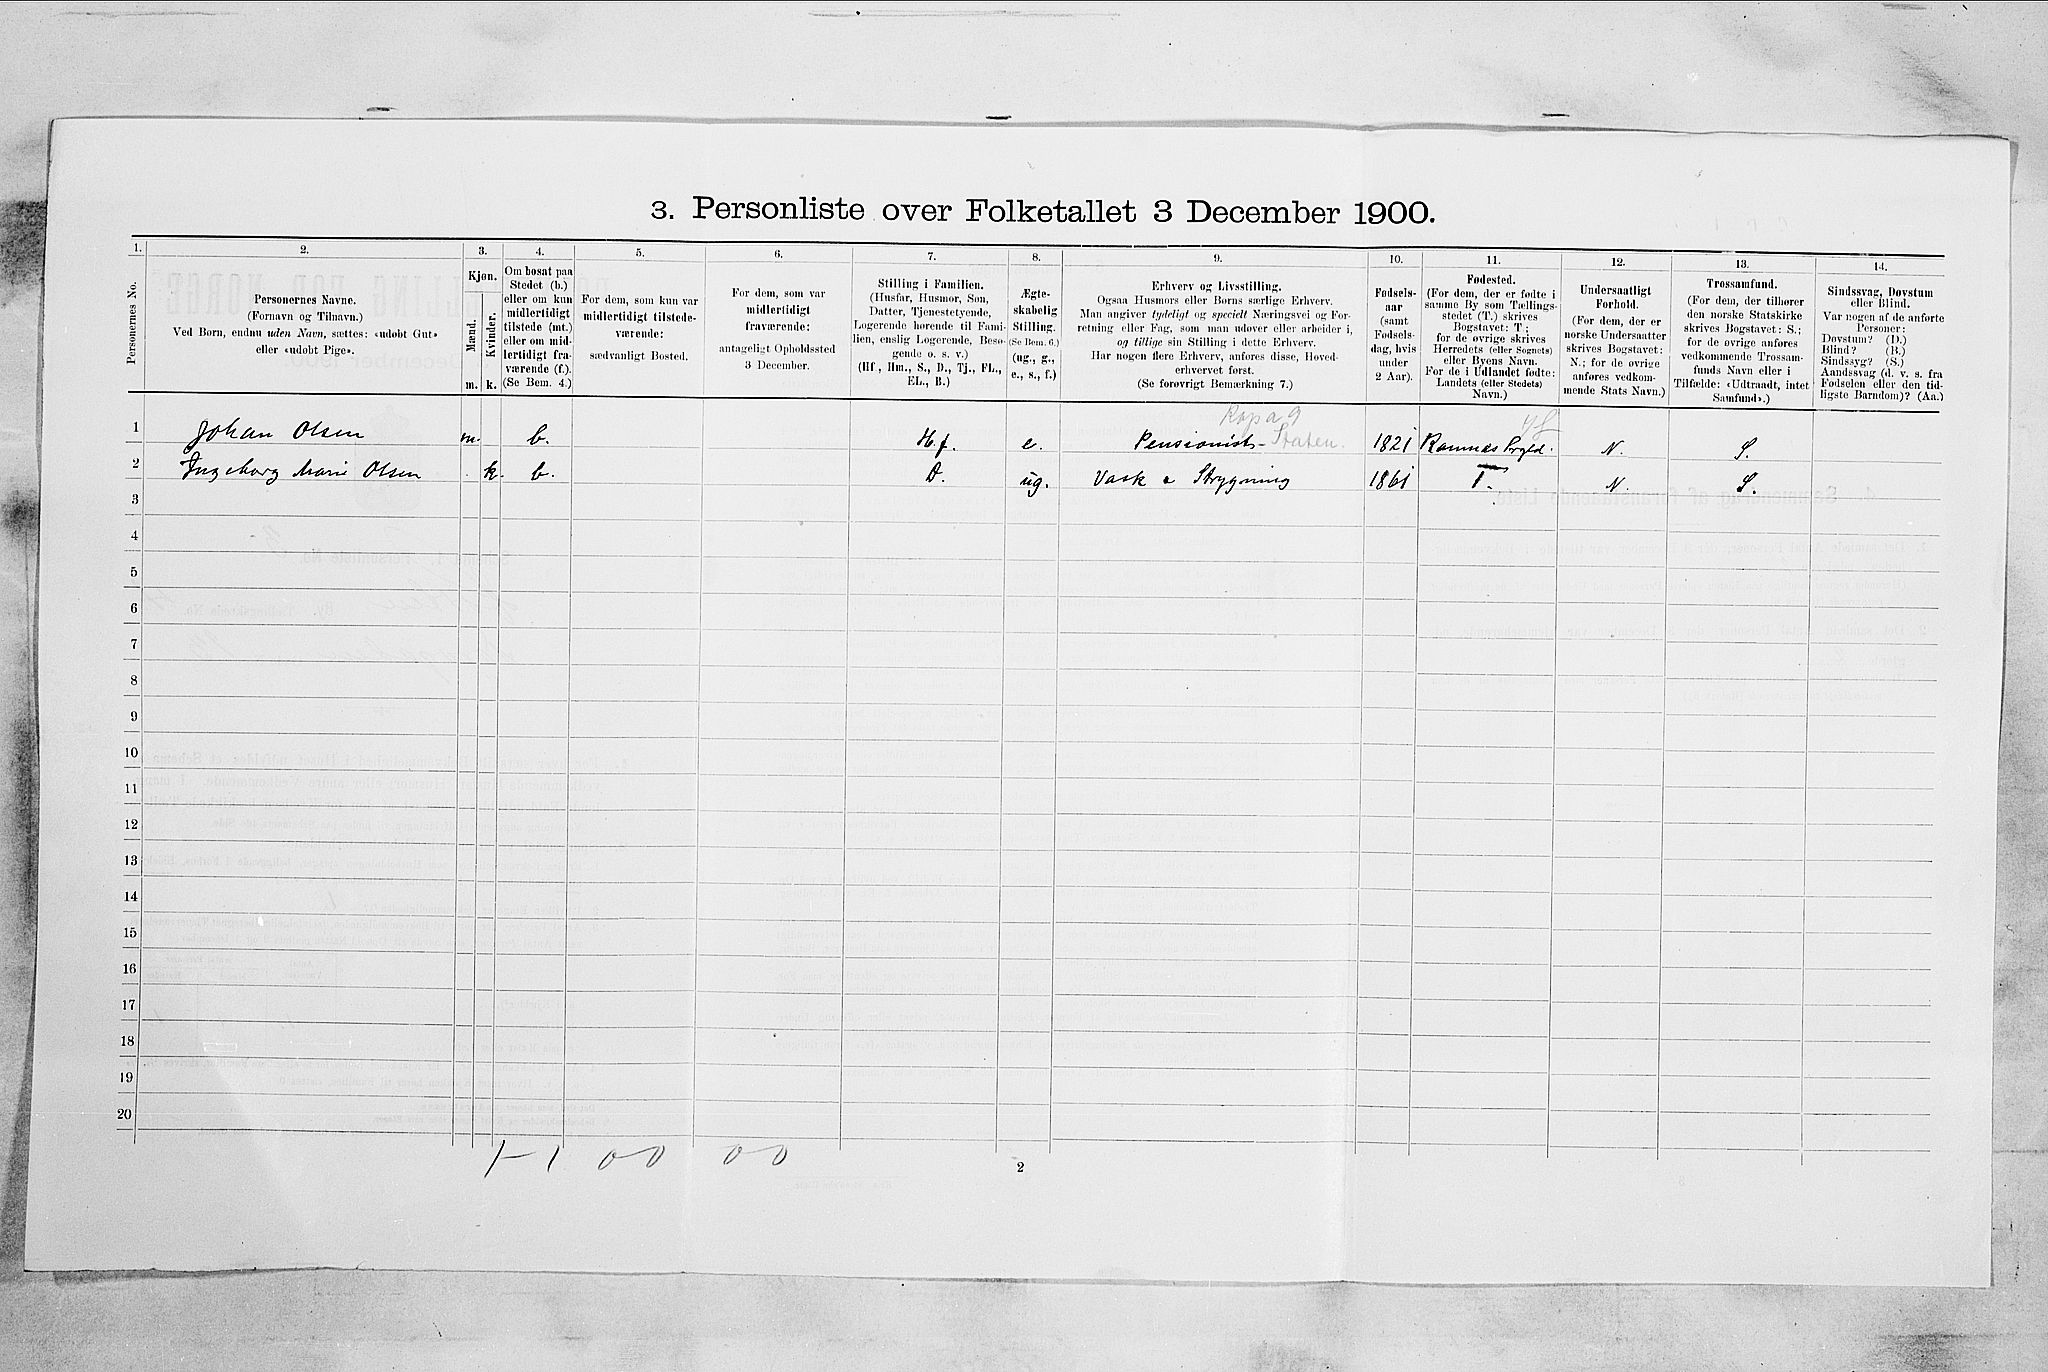 3. Personliste over Folketallet 3 December 1900.
1. 2. 3. 4. 5. 6. 7. 8. 9. 10. 11. 12. 13. 14.
Personernes No.
Personernes Navne.
(Fornavn og Tilnavn.)
Ved Børn, endnu uden Navn, sættes: «udøbt Gut»
eller «udøbt Pige».
Kjøn.
Mænd.
Kvinder.
m. k.
Om bosat paa
Stedet (b.)
eller om kun
midlertidigt
tilstede (mt.)
eller om mid-
lertidigt fra-
værende (f.).
(Se Bem. 4.)
For dem, som kun var
midlertidigt tilstede-
værende:
sædvanligt Bosted.
For dem, som var
midlertidigt
fraværende:
antageligt Opholdssted
3 December.
Stilling i Familien.
(Husfar, Husmor, Søn,
Datter, Tjenestetyende,
Logerende hørende til Fami-
lien, enslig Logerende, Besø-
gende o. s. v.)
(Hf., Hm., S., D., Tj., FL.,
EL., B.)
Ægte-
skabelig
Stilling.
(Se Bem. 6.)
(ug., g.,
e., s., f.)
Erhverv og Livsstilling.
Ogsaa Husmors eller Børns særlige Erhverv.
Man angiver tydeligt og specielt Næringsvei og For-
retning eller Fag, som man udøver eller arbeider i,
og tillige sin Stilling i dette Erhverv.
Har nogen flere Erhverv, anføres disse, Hoved-
erhvervet først.
(Se forøvrigt Bemærkning 7.)
Fødsels-
aar
(samt
Fødsels-
dag, hvis
under
2 Aar).
Fødested.
(For dem, der er fødte i
samme By som Tællings-
stedet (T.) skrives
Bogstavet: T;
for de øvrige skrives
Herredets (eller Sognets)
eller Byens Navn.
For de i Udlandet fødte:
Landets (eller Stedets)
Navn.)
Undersaatligt
Forhold.
(For dem, der er
norske Undersaatter
skrives Bogstavet:
N.; for de øvrige
anføres vedkom-
mende Stats Navn.)
Trossamfund.
(For dem, der tilhører
den norske Statskirke
skrives Bogstavet: S.;
for de øvrige anføres
vedkommende Trossam-
funds Navn eller i
Tilfælde: «Udtraadt, intet
Samfund».)
Sindssvag, Døvstum
eller Blind.
Var nogen af de anførte
Personer:
Døvstum? (D.)
Blind? (B.)
Sindssyg? (S.)
Aandssvag (d. v. s. fra
Fødselen eller den tid-
ligste Barndom)? (Aa.)
1 Johan Olsen m. b. H.f. e. Pensionist - Staten. 1821 Ramnes N. S.
2 Ingeborg Marie Olsen k. b. D. ug. Vask & Strygning 1861 T. N. S.
3
4
5
6
7
8
9
10
11
12
13
14
15
16
17
18
19
20
1-1 00 00
2